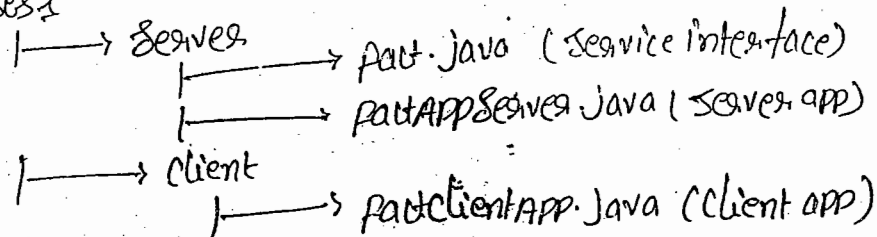 |→ Server
|→ pact.java (service interface)
|→ pactAppServer.java (server app)
|→ client
|→ pactClientApp.java (client app)